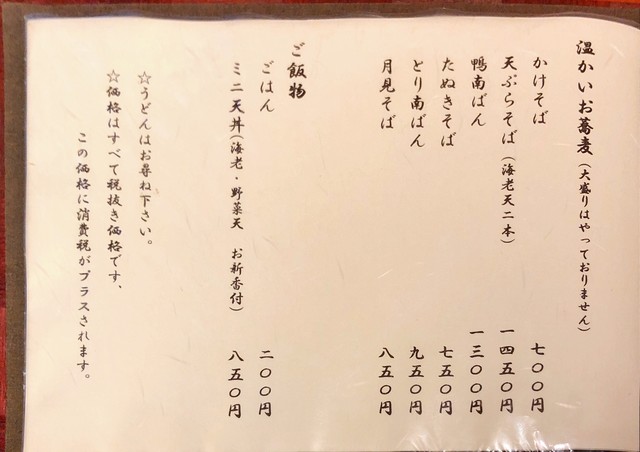 温かいお蕎麦（大盛りはやっておりません）
かけそば 七〇〇円
天ぷらそば（海老天二本） 一四五〇円
鴨南ばん 一三〇〇円
たぬきそば 七五〇円
とり南ばん 九五〇円
月見そば 八五〇円
ご飯物
ごはん 二〇〇円
ミニ天丼（海老・野菜天 お新香付） 八五〇円
☆うどんはお尋ね下さい。
☆価格はすべて税抜き価格です、
この価格に消費税がプラスされます。